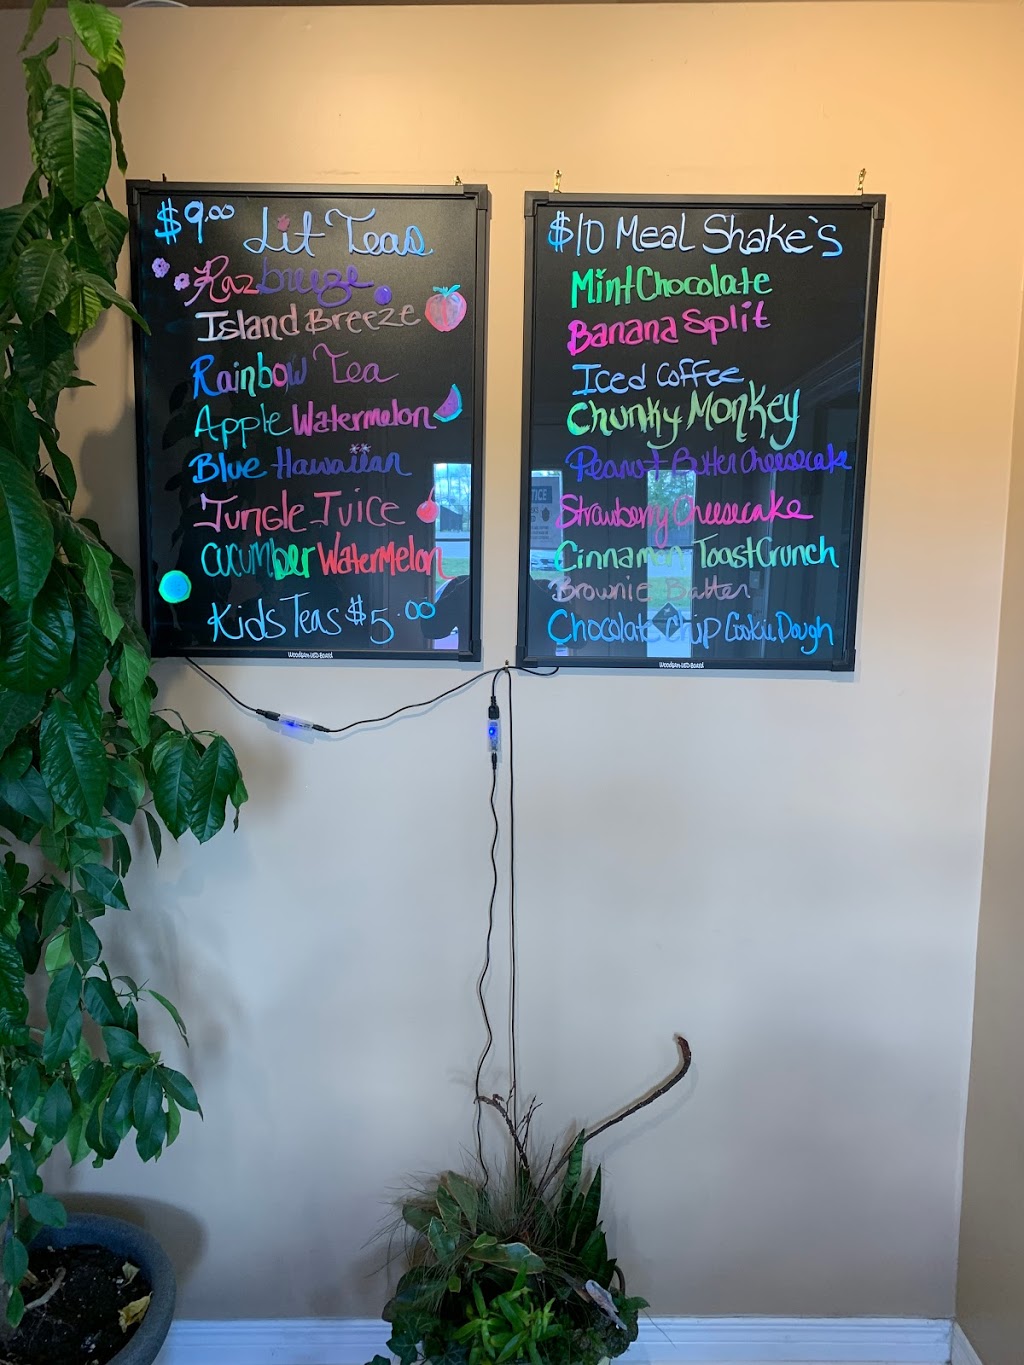 $9.00 Lit Teas
Razbreeze
Island Breeze
Rainbow Tea
Apple Watermelon
Blue Hawaiian
Jungle Juice
Cucumber Watermelon
Kids Teas $5.00
Woodsam LED Board
$10 Meal Shake's
Mint Chocolate
Banana Split
Iced Coffee
Chunky Monkey
Peanut Butter Cheesecake
Strawberry Cheesecake
Cinnamon Toast Crunch
Brownie Batter
Chocolate Chip Cookie Dough
Woodsam LED Board